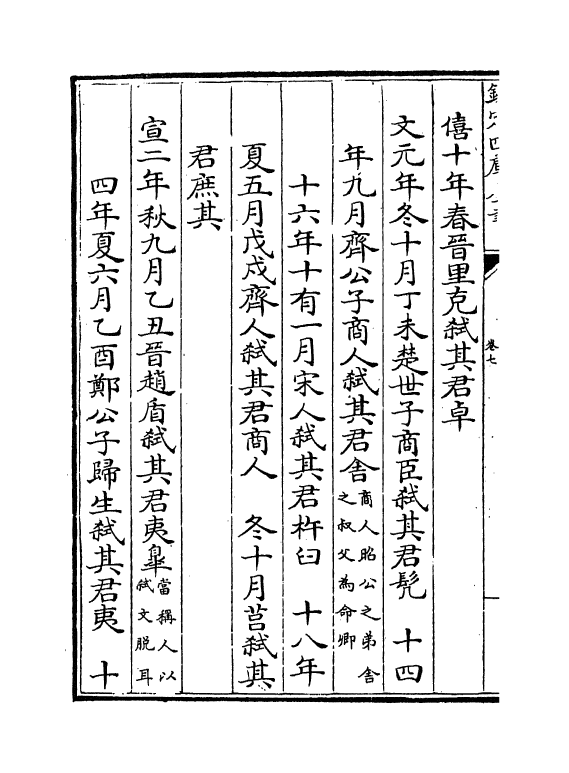 欽定四庫全書
卷七
僖十年春晉里克弑其君卓
文元年冬十月丁未楚世子商臣弑其君髡　十四
年九月齊公子商人弑其君舍商人昭公之弟舍之叔父為命卿
十六年十有一月宋人弑其君杵臼　十八年
夏五月戊戍齊人弑其君商人　冬十月莒弑其
君庶其
宣二年秋九月乙丑晉趙盾弑其君夷皐當稱人以弑文脱耳
四年夏六月乙酉鄭公子歸生弑其君夷　十